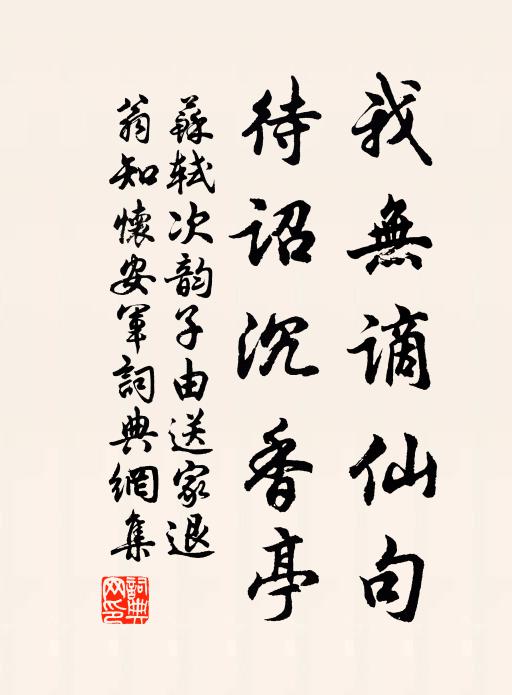 我無謫仙句
待詔沉香亭
蘇軾次韵子由送家退
翁知懷安軍詞典網集
詞典網印